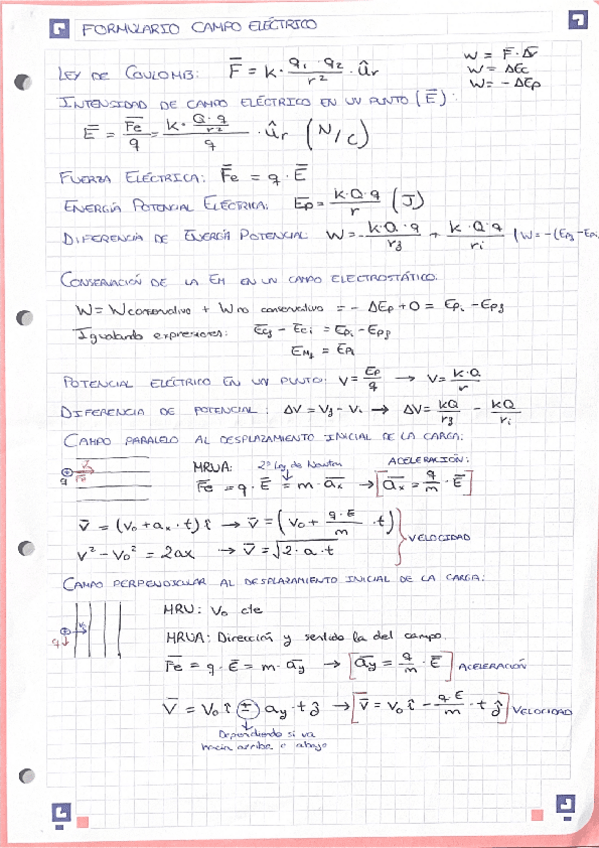 FORMULARIO CAMPO ELÉCTRICO
LEY DE COULOMB: F̅ = K · q₁ · q₂ / r² · ûr
W = F̅ · Δr̅
W = ΔEc
W = - ΔEp
INTENSIDAD DE CAMPO ELÉCTRICO EN UN PUNTO (E̅):
E̅ = F̅e / q = (K · Q · q / r²) / q · ûr (N/C)
FUERZA ELÉCTRICA: F̅e = q · E̅
ENERGÍA POTENCIAL ELÉCTRICA: Ep = K·Q·q / r (J)
DIFERENCIA DE ENERGÍA POTENCIAL W = - K·Q·q / rf + K·Q·q / ri (W = -(Epf - Epi
CONSERVACIÓN DE LA EM EN UN CAMPO ELECTROSTÁTICO:
W = W conservativo + W no conservativo = - ΔEp + 0 = Epi - Epf
Igualando expresiones: Ecf - Eci = Epi - Epf
EMf = EMi
POTENCIAL ELÉCTRICO EN UN PUNTO: V = Ep / q → V = K·Q / r
DIFERENCIA DE POTENCIAL: ΔV = Vf - Vi → ΔV = KQ / rf - KQ / ri
CAMPO PARALELO AL DESPLAZAMIENTO INICIAL DE LA CARGA:
MRUA: 2ª Ley de Newton ACELERACIÓN:
q F̅e = q · E̅ = m · a̅x → [a̅x = q/m · E̅]
v̅ = (v₀ + ax · t) î → v̅ = (v₀ + q·E / m · t)
v² - v₀² = 2ax → v̅ = √2·a·t
VELOCIDAD
CAMPO PERPENDICULAR AL DESPLAZAMIENTO INICIAL DE LA CARGA:
MRU: v₀ cte
MRUA: Dirección y sentido la del campo.
F̅e = q · E̅ = m · a̅y → [a̅y = q/m · E̅] ACELERACIÓN
v̅ = v₀ î ± ay · t ĵ → [v̅ = v₀ î - q·E / m · t ĵ] VELOCIDAD
Dependiendo si va
hacia arriba o abajo